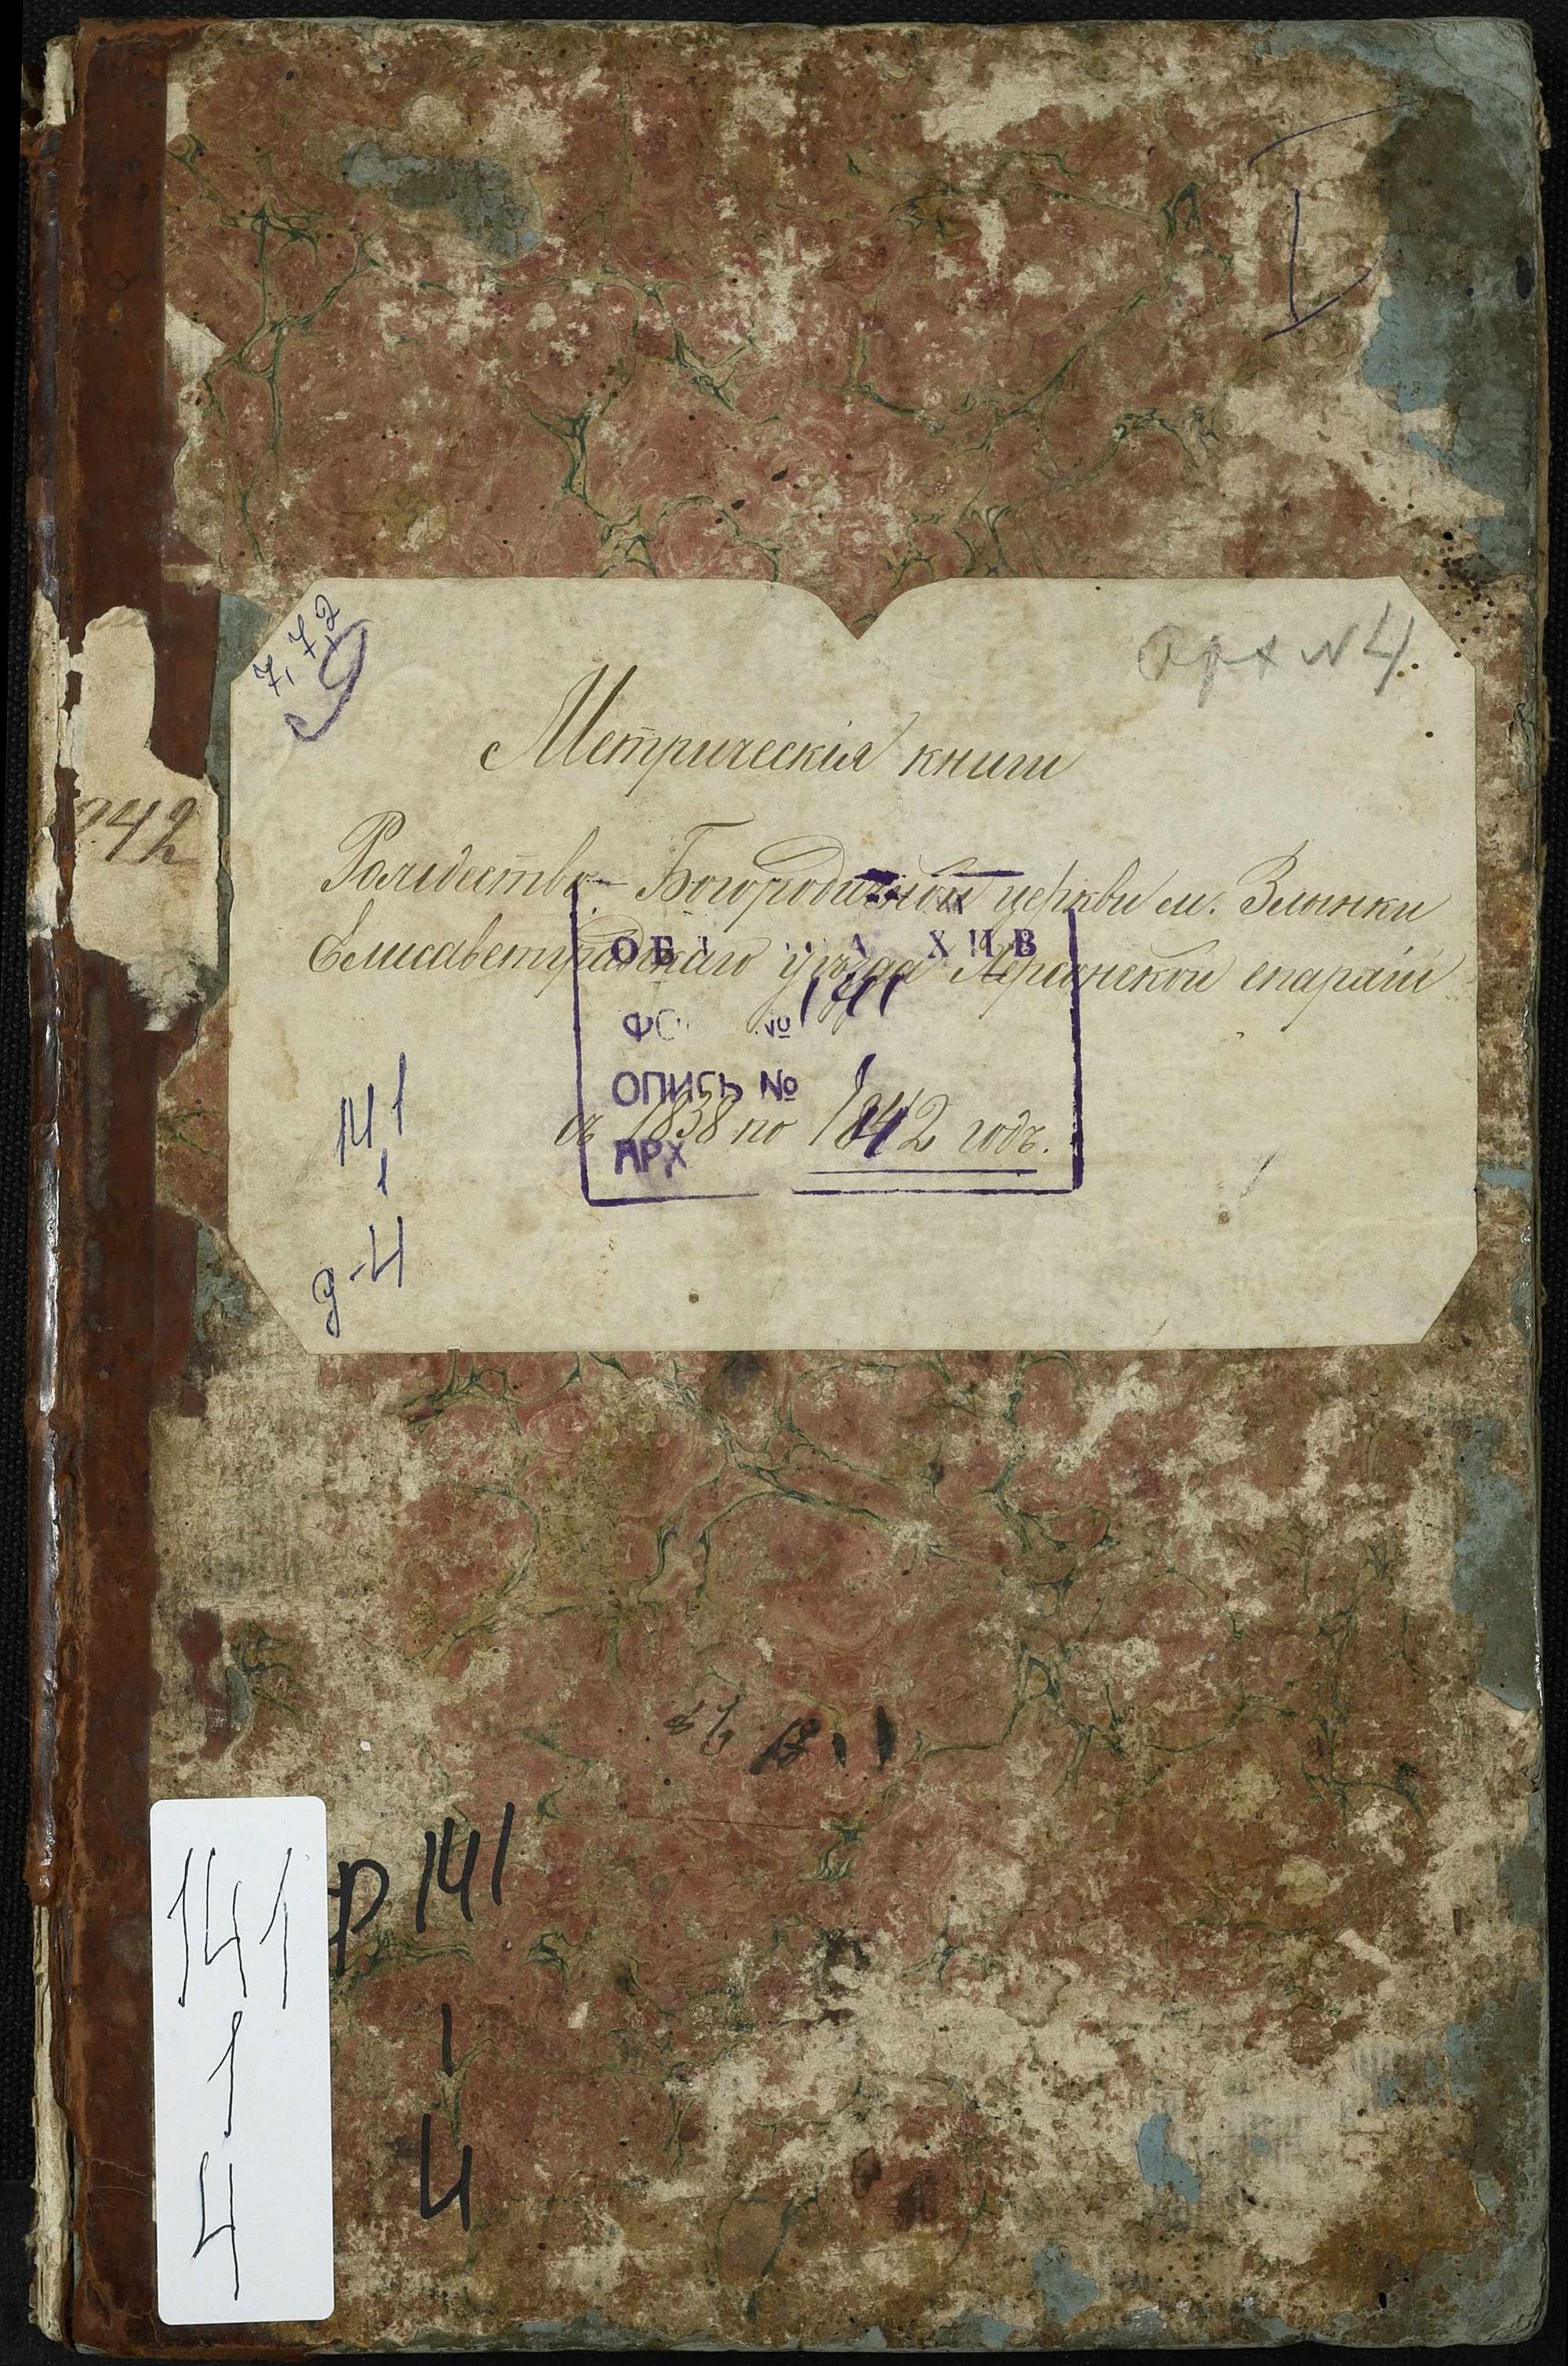 7, 7, 2
9
Арх № 4
Метрическія книги
Рождество-Богородичной церкви м. Злынки
Елисаветградскаго уѣзда Херсонской епархіи
съ 1838 по 1842 годъ.
ФО № 141
ОПИСЬ № 1
АРХ 4
141
1
д-4
242
р 141
1
4
141
1
4